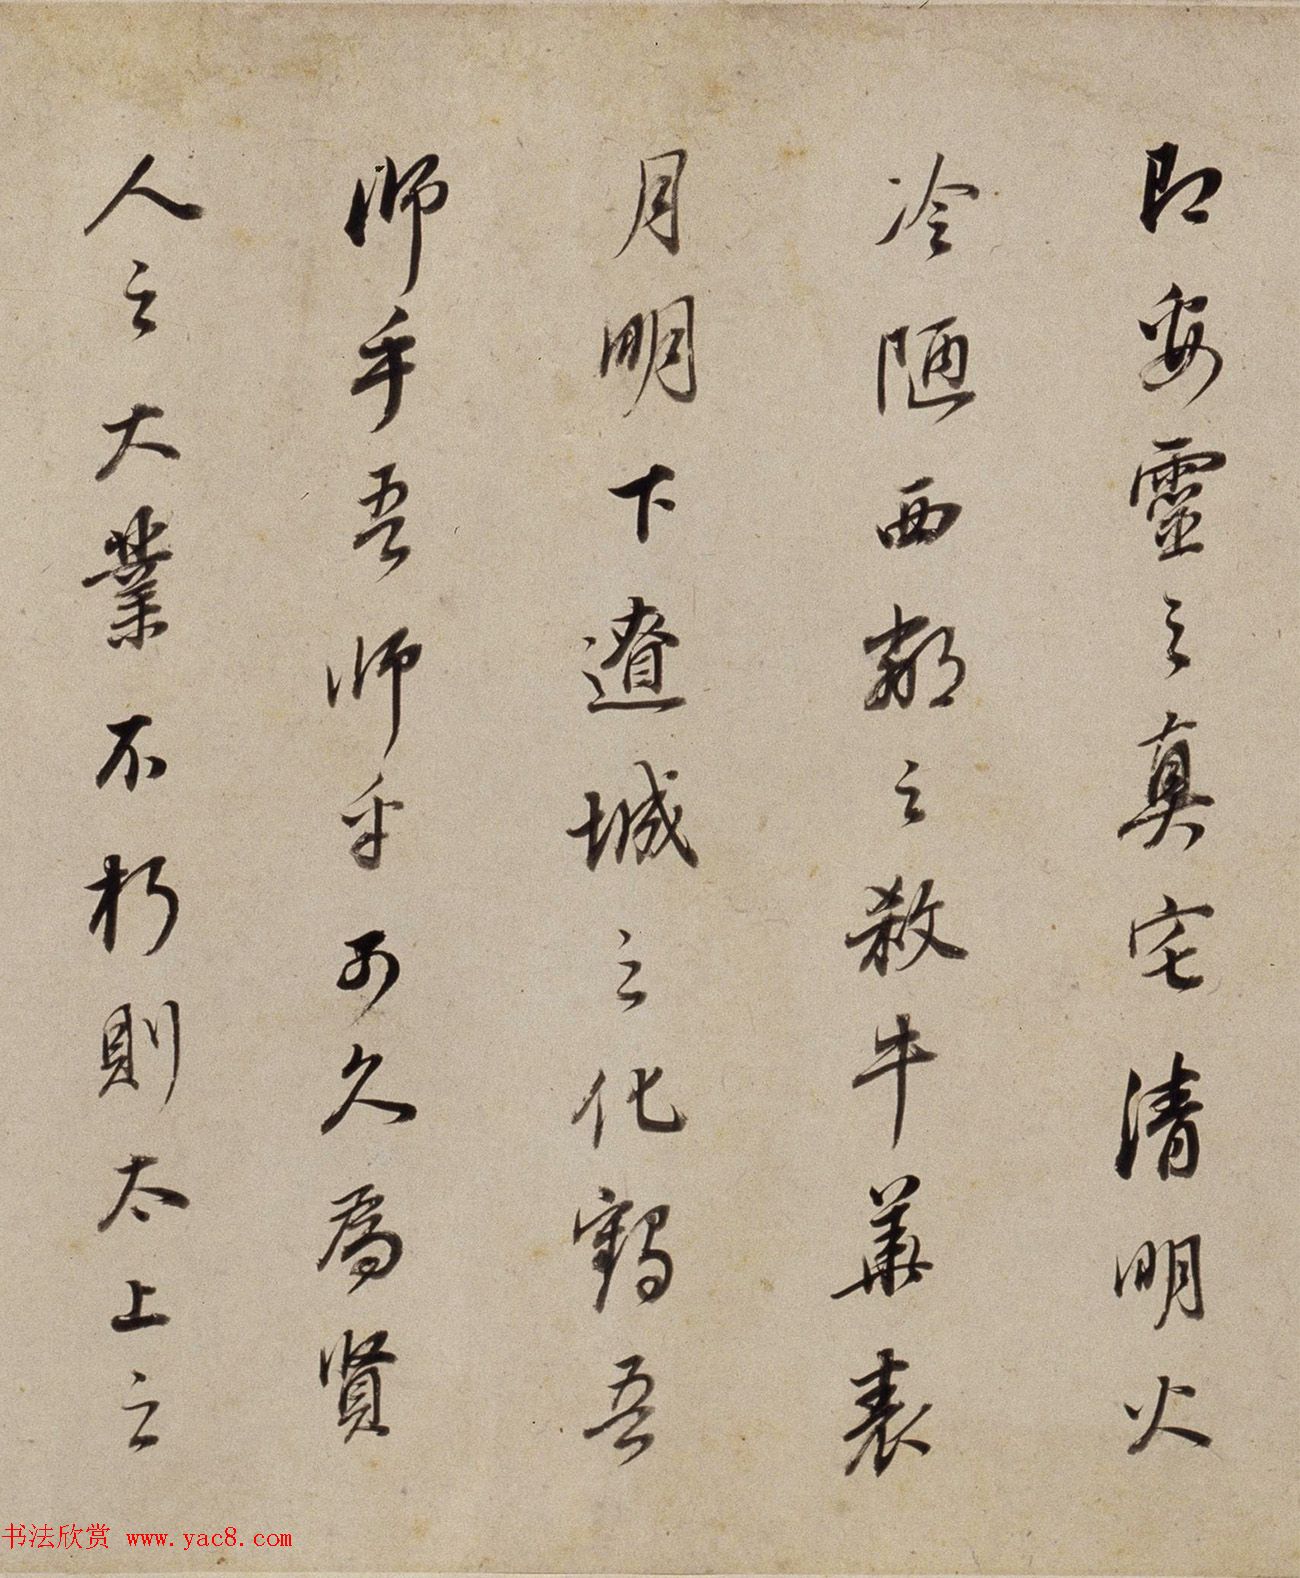 即安靈之真宅清明火
冷陋西鄰之殺牛華表
月明下遼城之化鶴吾
師乎吾師乎可久為賢
人之大業不朽則太上之
书法欣赏 www.yac8.com